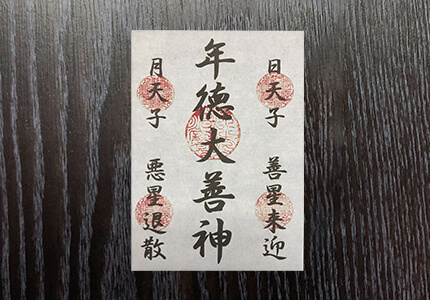 日天子
善星来迎
年徳大善神
月天子
悪星退散